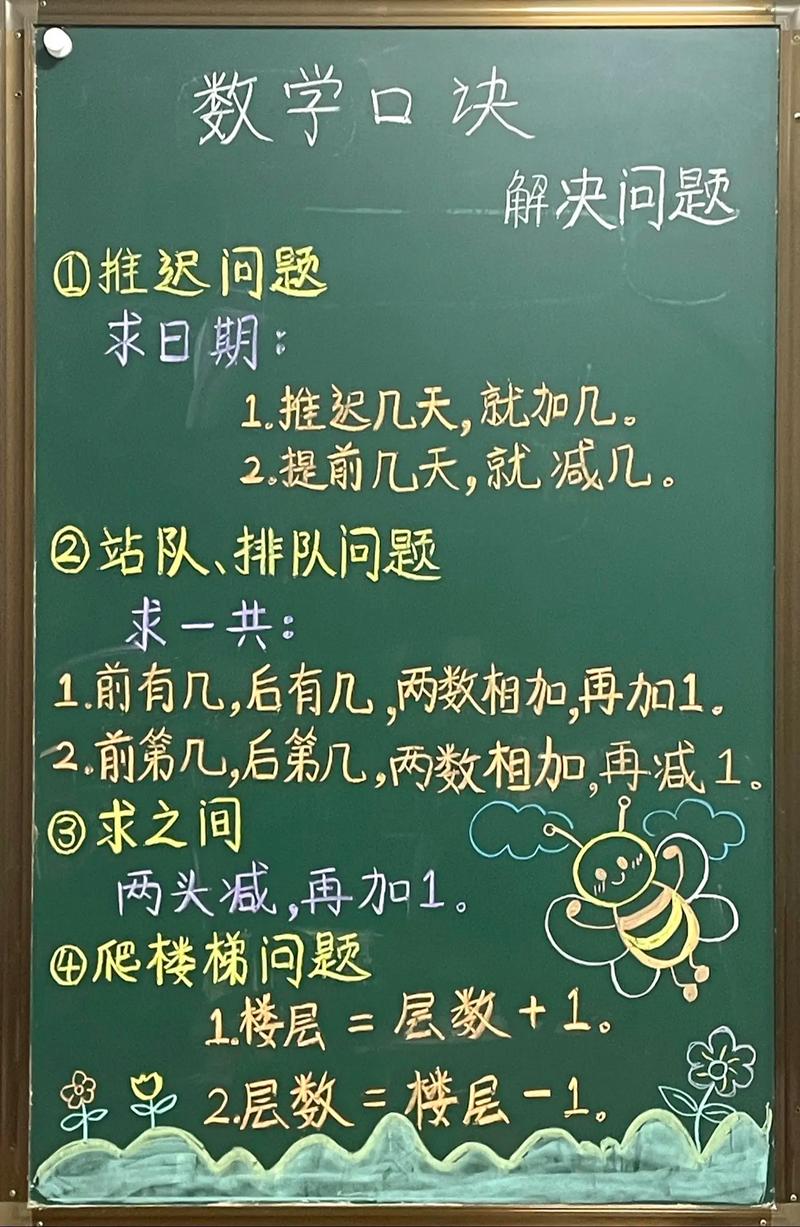 数学口诀
解决问题
①推迟问题
求日期：
1.推迟几天，就加几。
2.提前几天，就减几。
②站队、排队问题
求一共：
1.前有几，后有几，两数相加，再加1。
2.前第几，后第几，两数相加，再减1。
③求之间
两头减，再加1。
④爬楼梯问题
1.楼层=层数+1。
2.层数=楼层-1。